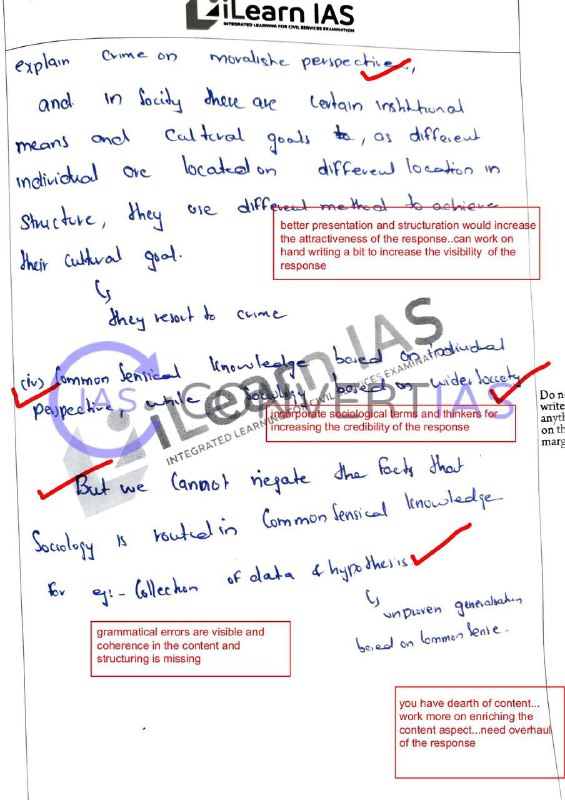 iLearn IAS
INTEGRATED LEARNING FOR CIVIL SERVICES EXAMINATION
explain crime on moralistic perspective,
and in Socity there are certain institutional
means and Cultural goals to, as different
individual are located on different location in
structure, they use different method to achieve
their cultural goal.
they resort to crime
better presentation and structuration would increase
the attractiveness of the response..can work on
hand writing a bit to increase the visibility of the
response
(iv) Common Sensical knowledge based on individual
perspective, while Sociology based on wider Society
IAS - CONVERT IAS
iLearn IAS
INTEGRATED LEARNING FOR CIVIL SERVICES EXAMINATION
incorporate sociological terms and thinkers for
increasing the credibility of the response
Do no
write
anyth
on th
marg
But we Cannot negate the facts that
Sociology is routed in Common Sensical knowledge
for eg:- Collection of data & hypothesis
unproven generalisation
based on Common Sense.
grammatical errors are visible and
coherence in the content and
structuring is missing
you have dearth of content...
work more on enriching the
content aspect...need overhaul
of the response